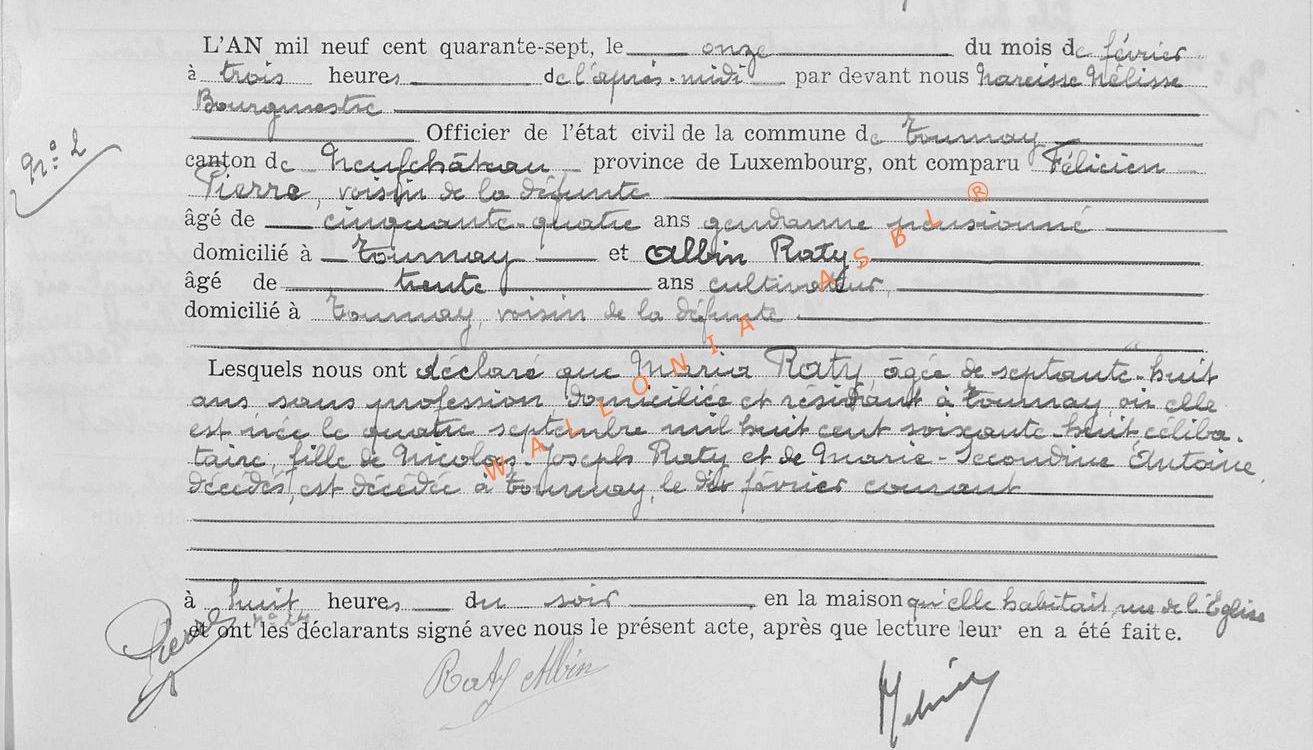 L'AN mil neuf cent quarante-sept, le onze du mois de février
à trois heures de l'après-midi par devant nous Narcisse Nélisse
Bourgmestre
Officier de l'état civil de la commune de Tournay
N° 2
canton de Neufchâteau province de Luxembourg, ont comparu Félicien
Pierre, voisin de la défunte
âgé de cinquante-quatre ans gendarme pensionné
domicilié à Tournay et Albin Raty,
âgé de trente ans cultivateur,
domicilié à Tournay, voisin de la défunte
Lesquels nous ont déclaré que Maria Raty, âgée de septante-huit
ans sans profession domiciliée et résidant à Tournay, où elle
est née le quatre septembre mil huit cent soixante-huit, céliba-
taire, fille de Nicolas-Joseph Raty et de Marie-Secondine Antoine,
décédés, est décédée à Tournay, le dix février courant
à huit heures du soir en la maison qu'elle habitait, rue de l'Église
n° 24
et ont les déclarants signé avec nous le présent acte, après que lecture leur en a été faite.
Pierre
Raty Albin
WALLONIA ASBL ®